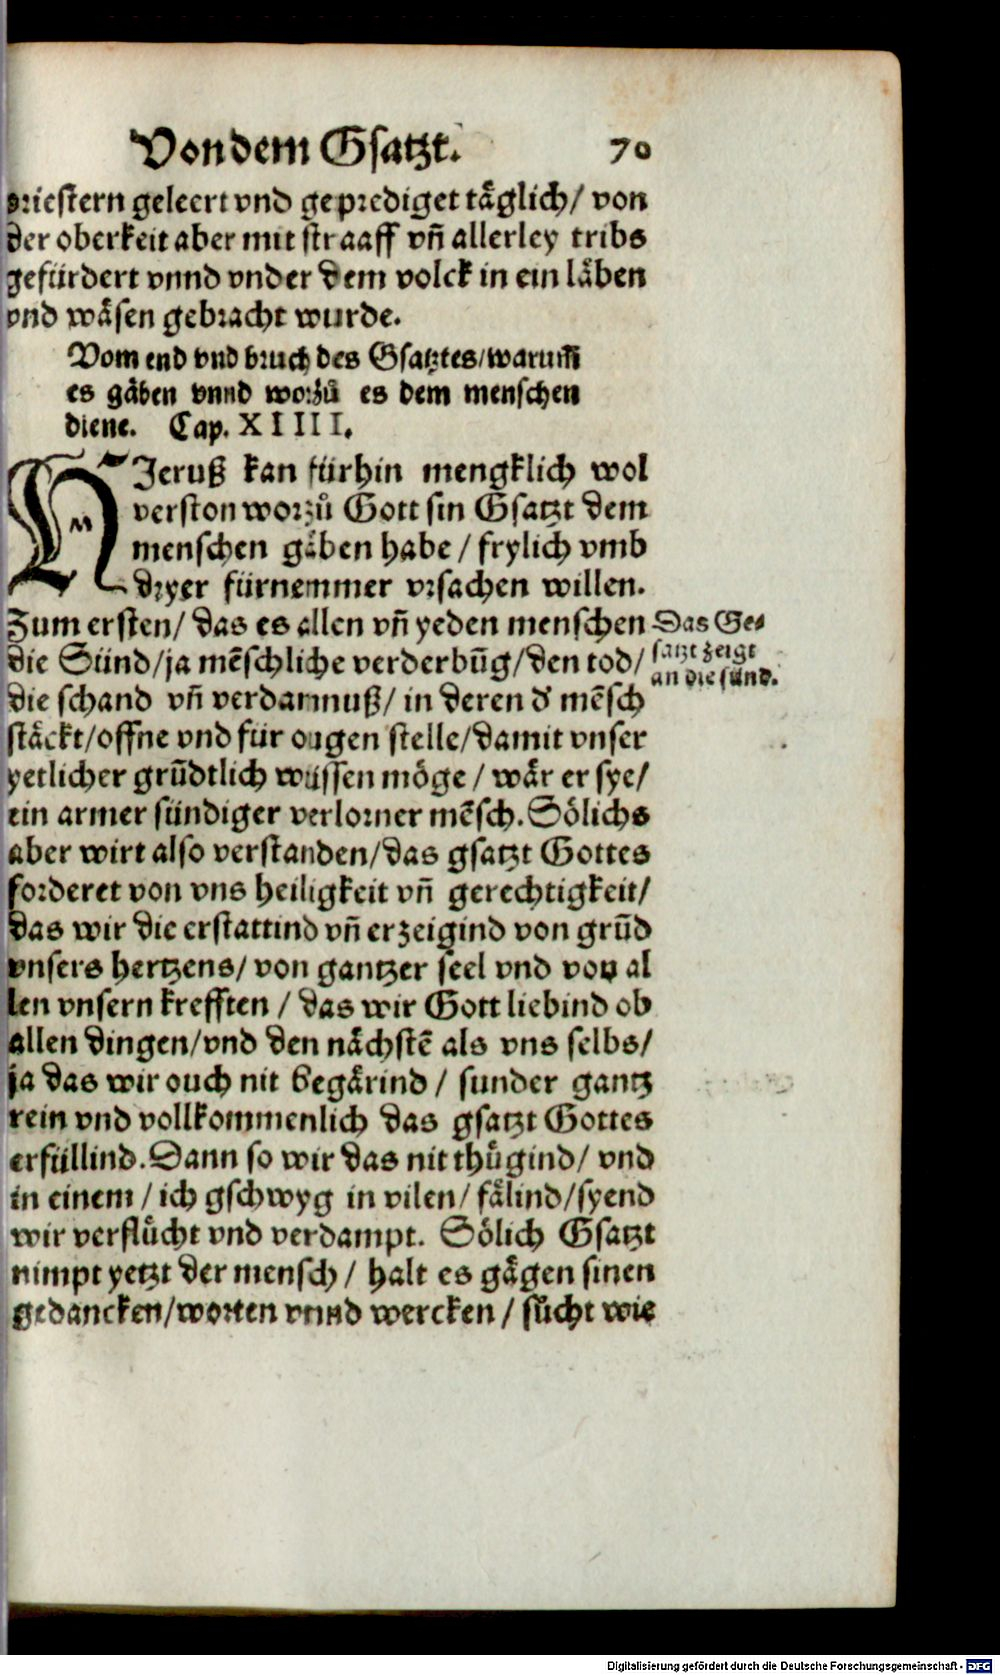 Von dem Gsatzt. 70
priestern geleert vnd geprediget täglich/ von
der oberkeit aber mit straaff vn̄ allerley tribs
gefürdert vnnd vnder dem volck in ein läben
vnd wäsen gebracht wurde.
Vom end vnd bruch des Gsatztes/warum̄
es gäben vnnd worzů es dem menschen
diene. Cap. XIIII.
HIeruß kan fürhin mengklich wol
verston worzů Gott sin Gsatzt dem
menschen gäben habe / frylich vmb
dryer fürnemmer vrsachen willen.
Zum ersten/ das es allen vn̄ yeden menschen
die Sünd/ja mēschliche verderbūg/den tod/
die schand vn̄ verdamnuß/ in deren d' mēsch
stäckt/offne vnd für ougen stelle/damit vnser
yetlicher grūdtlich wüssen möge / wär er sye/
ein armer sündiger verlorner mēsch. Sölichs
aber wirt also verstanden/das gsatzt Gottes
forderet von vns heiligkeit vn̄ gerechtigkeit/
das wir die erstattind vn̄ erzeigind von grūd
vnsers hertzens/ von gantzer seel vnd von al
len vnsern krefften / das wir Gott liebind ob
allen dingen/vnd den nächstē als vns selbs/
ja das wir ouch nit begärind / sunder gantz
rein vnd vollkommenlich das gsatzt Gottes
erfüllind. Dann so wir das nit thügind/ vnd
in einem / ich gschwyg in vilen/ fälind/syend
wir verflůcht vnd verdampt. Sölich Gsatzt
nimpt yetzt der mensch / halt es gägen sinen
gedancken/worten vnnd wercken / sůcht wie
Das Ge-
satzt zeigt
an die sünd.
Digitalisierung gefördert durch die Deutsche Forschungsgemeinschaft - DFG